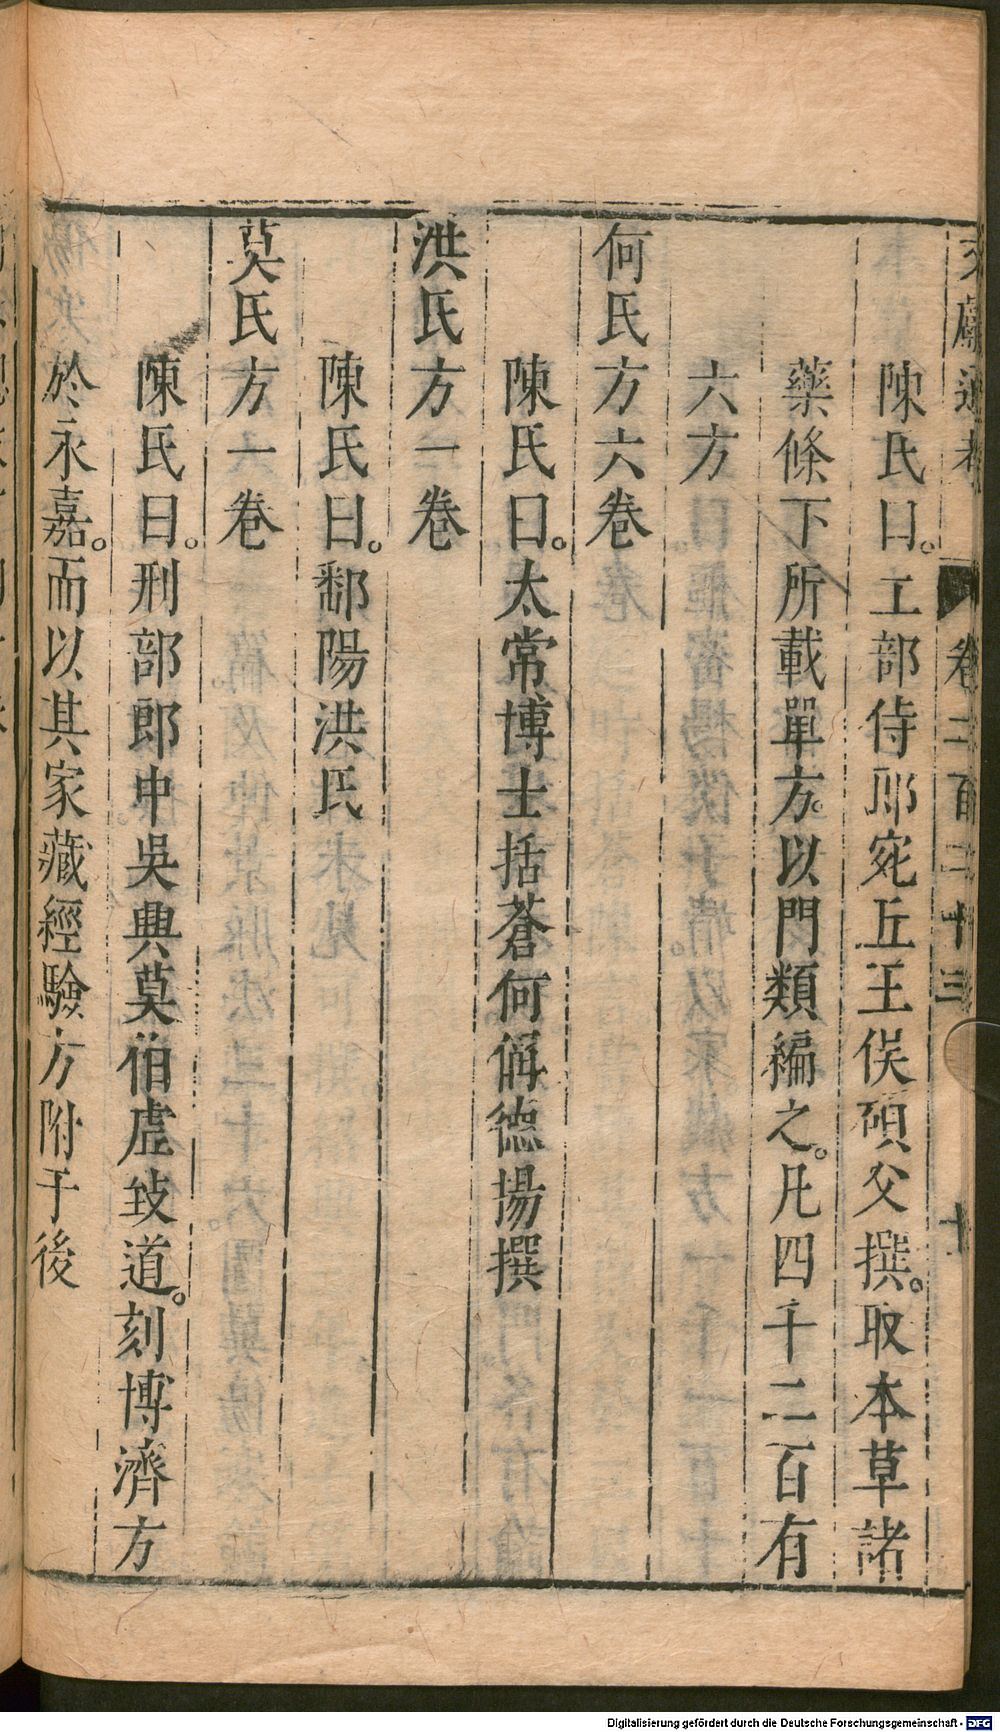 文獻通考 卷二百二十三 十
陳氏曰。工部侍郎宛丘王俁碩父撰。取本草諸
藥條下所載單方。以門類編之。凡四千二百有
六方
何氏方六卷
陳氏曰。太常博士括蒼何偁德揚撰
洪氏方一卷
陳氏曰。鄱陽洪氏
莫氏方一卷
陳氏曰。刑部郎中吳興莫伯虛致道。刻博濟方
於永嘉。而以其家藏經驗方附于後
Digitalisierung gefördert durch die Deutsche Forschungsgemeinschaft - DFG